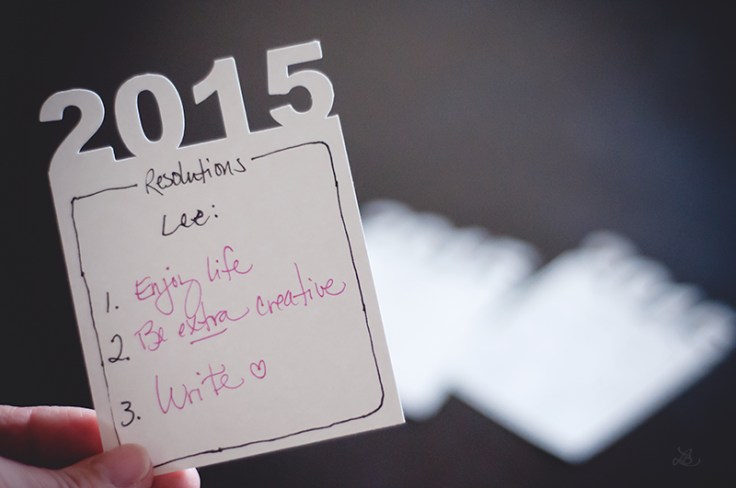 2015
Resolutions
Lee:
1. Enjoy life
2. Be extra creative
3. Write ♡